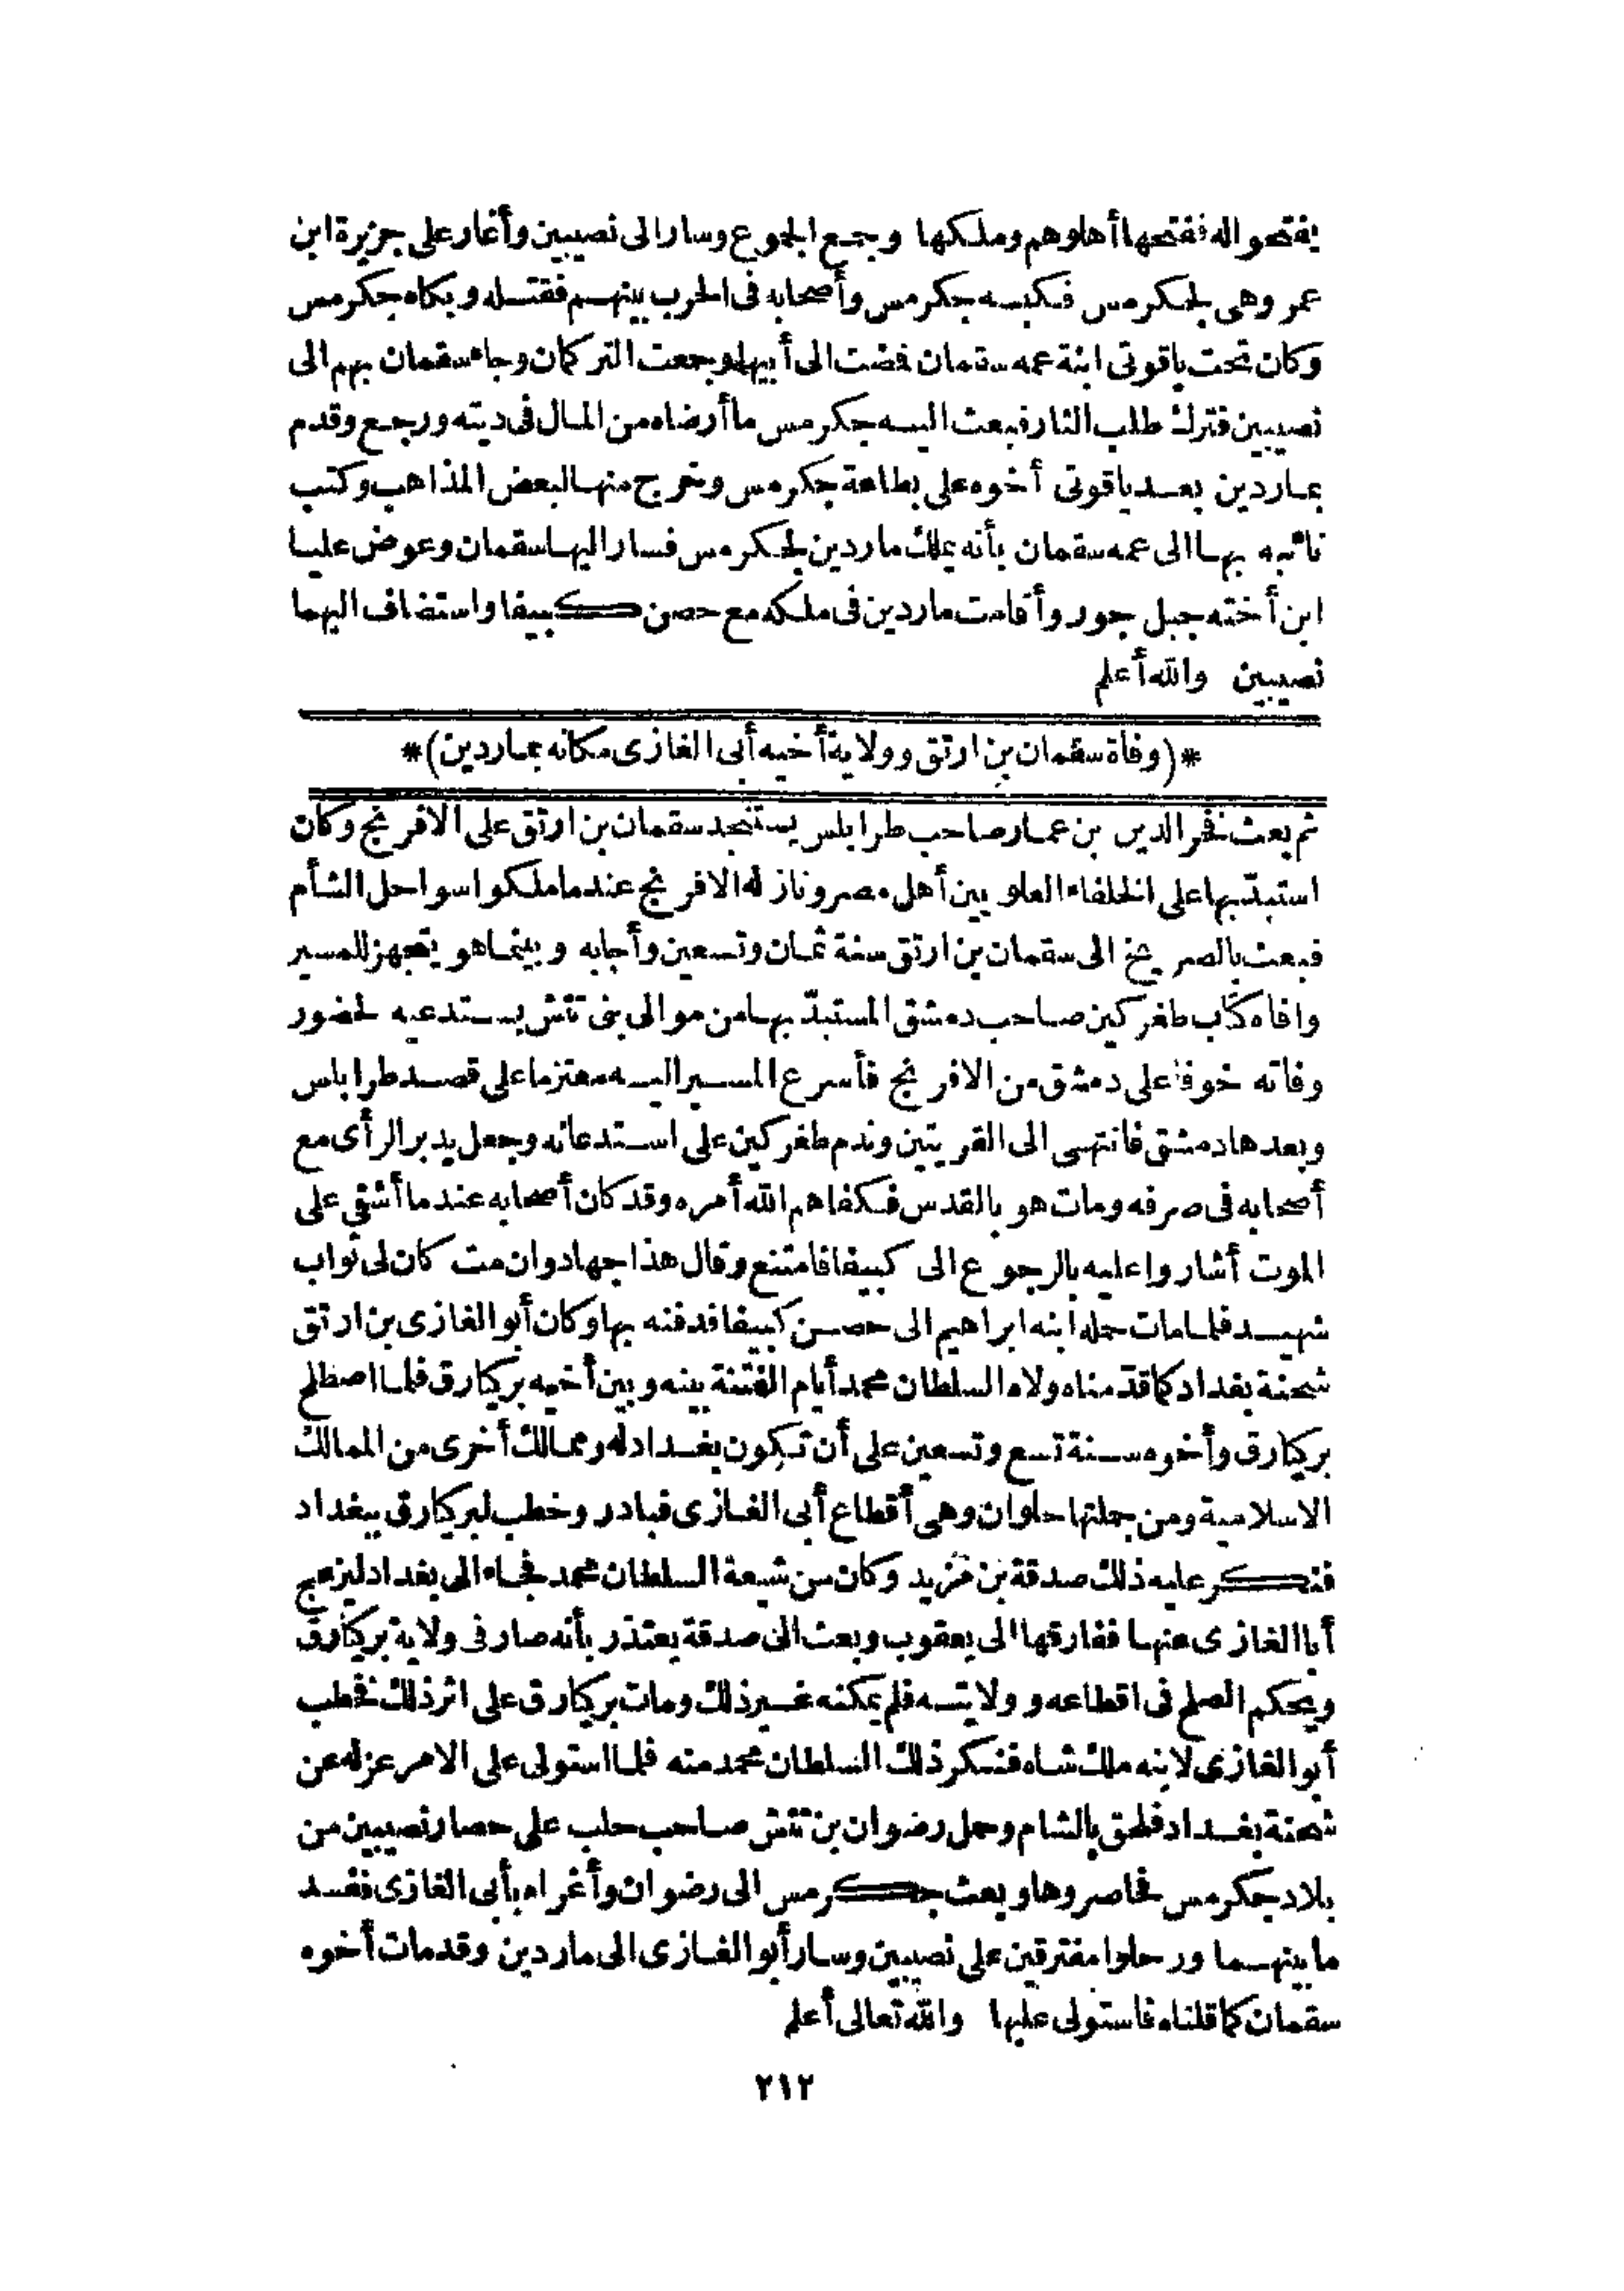 يفتحوا له ففتحها أهلوهم وملكها وجمع الجموع وسار الى نصيبين وأغار على جزيرة ابن
عمر وهى لجكرمس فكبسه جكرمس وأصحابه فى الحرب بينهم فقتله وبكاه جكرمس
وكان تحت ياقوتى ابنة عمه سقمان فمضت الى أبيها وجمعت التركمان وجاء سقمان بهم الى
نصيبين فترك طلب الثار فبعث اليه جكرمس ما أرضاه من المال فى ديته ورجع وقدم
بماردين بعد ياقوتى أخوه على بطاعة جكرمس وخرج منها لبعض المذاهب وكتب
نائبه بها الى عمه سقمان بأنه يملك ماردين لجكرمس فسار اليها سقمان وعوض عليا
ابن أخته جبل جور وأقامت ماردين فى ملكه مع حصن كبيفا واستضاف اليهما
نصيبين والله أعلم
*(وفاة سقمان بن ارتق وولاية أخيه أبى الغازى مكانه بماردين)*
ثم بعث فخر الدين بن عمار صاحب طرابلس يستنجد سقمان بن ارتق على الافرنج وكان
استبدّ بها على الخلفاء العلويين أهل مصر ونازله الافرنج عندما ملكوا سواحل الشأم
فبعث بالصريخ الى سقمان بن ارتق سنة ثمان وتسعين وأجابه وبينما هو يتجهز للمسير
وافاه كتاب طغركين صاحب دمشق المستبدّ بها من موالى بنى تتش يستدعيه لحضور
وفاته خوفا على دمشق من الافرنج فأسرع المسير اليه معتزما على قصد طرابلس
وبعدها دمشق فانتهى الى القريتين وندم طغركين على استدعائه وجعل يدبر الرأى مع
أصحابه فى صرفه ومات هو بالقدس فكفاهم الله أمره وقد كان أصحابه عندما أشفى على
الموت أشاروا عليه بالرجوع الى كبيفا فامتنع وقال هذا جهاد وان مت كان لى ثواب
شهيد فلما مات حمله ابنه ابراهيم الى حصن كبيفا فدفنه بها وكان أبو الغازى بن ارتق
شحنة بغداد كما قدّمناه ولاه السلطان محمد أيام الفتنة بينه وبين أخيه بركيارق فلما اصطلح
بركيارق وأخوه سنة تسع وتسعين على أن تكون بغداد له وممالك أخرى من الممالك
الاسلامية ومن جملتها حلوان وهى أقطاع أبى الغازى فبادر وخطب لبركيارق ببغداد
فنكر عليه ذلك صدقة بن مزيد وكان من شيعة السلطان محمد فجاء الى بغداد ليزعج
أبا الغازى عنها ففارقها الى يعقوب وبعث الى صدقة يعتذر بأنه صار فى ولاية بركيارق
ويحكم الصلح فى اقطاعه وولايته فلم يمكنه غير ذلك ومات بركيارق على اثر ذلك فخطب
أبو الغازى لابنه ملك شاه فنكر ذلك السلطان محمد منه فلما استولى على الامر عزله عن
شحنة بغداد فلحق بالشام وحمل رضوان بن تتش صاحب حلب على حصار نصيبين من
بلاد جكرمس فحاصروها وبعث جكرمس الى رضوان وأغراه بأبى الغازى ففسد
ما بينهما ورحلوا مفترقين على نصيبين وسار أبو الغازى الى ماردين وقد مات أخوه
سقمان كما قلناه فاستولى عليها والله تعالى أعلم
٢١٢